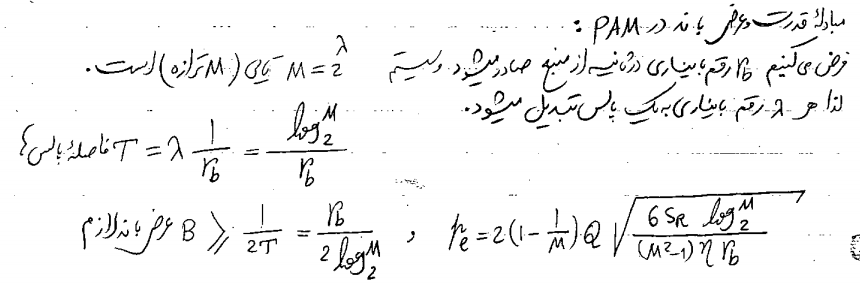 مبادلهٔ قدرت و عرض باند در PAM :
فرض می‌کنیم r_b رقم باینری در ثانیه از منبع صادر میشود و سیستم M = 2^λ تایی (M ترازه) است.
لذا هر λ رقم باینری به یک پالس تبدیل میشود.
فاصلهٔ پالس‌ها T = λ 1/r_b = log_2^M / r_b
عرض باند لازم B ≥ 1/2T = r_b / 2 log_2^M , p_e = 2(1 - 1/M) Q √(6 S_R log_2^M / (M^2-1) η r_b)